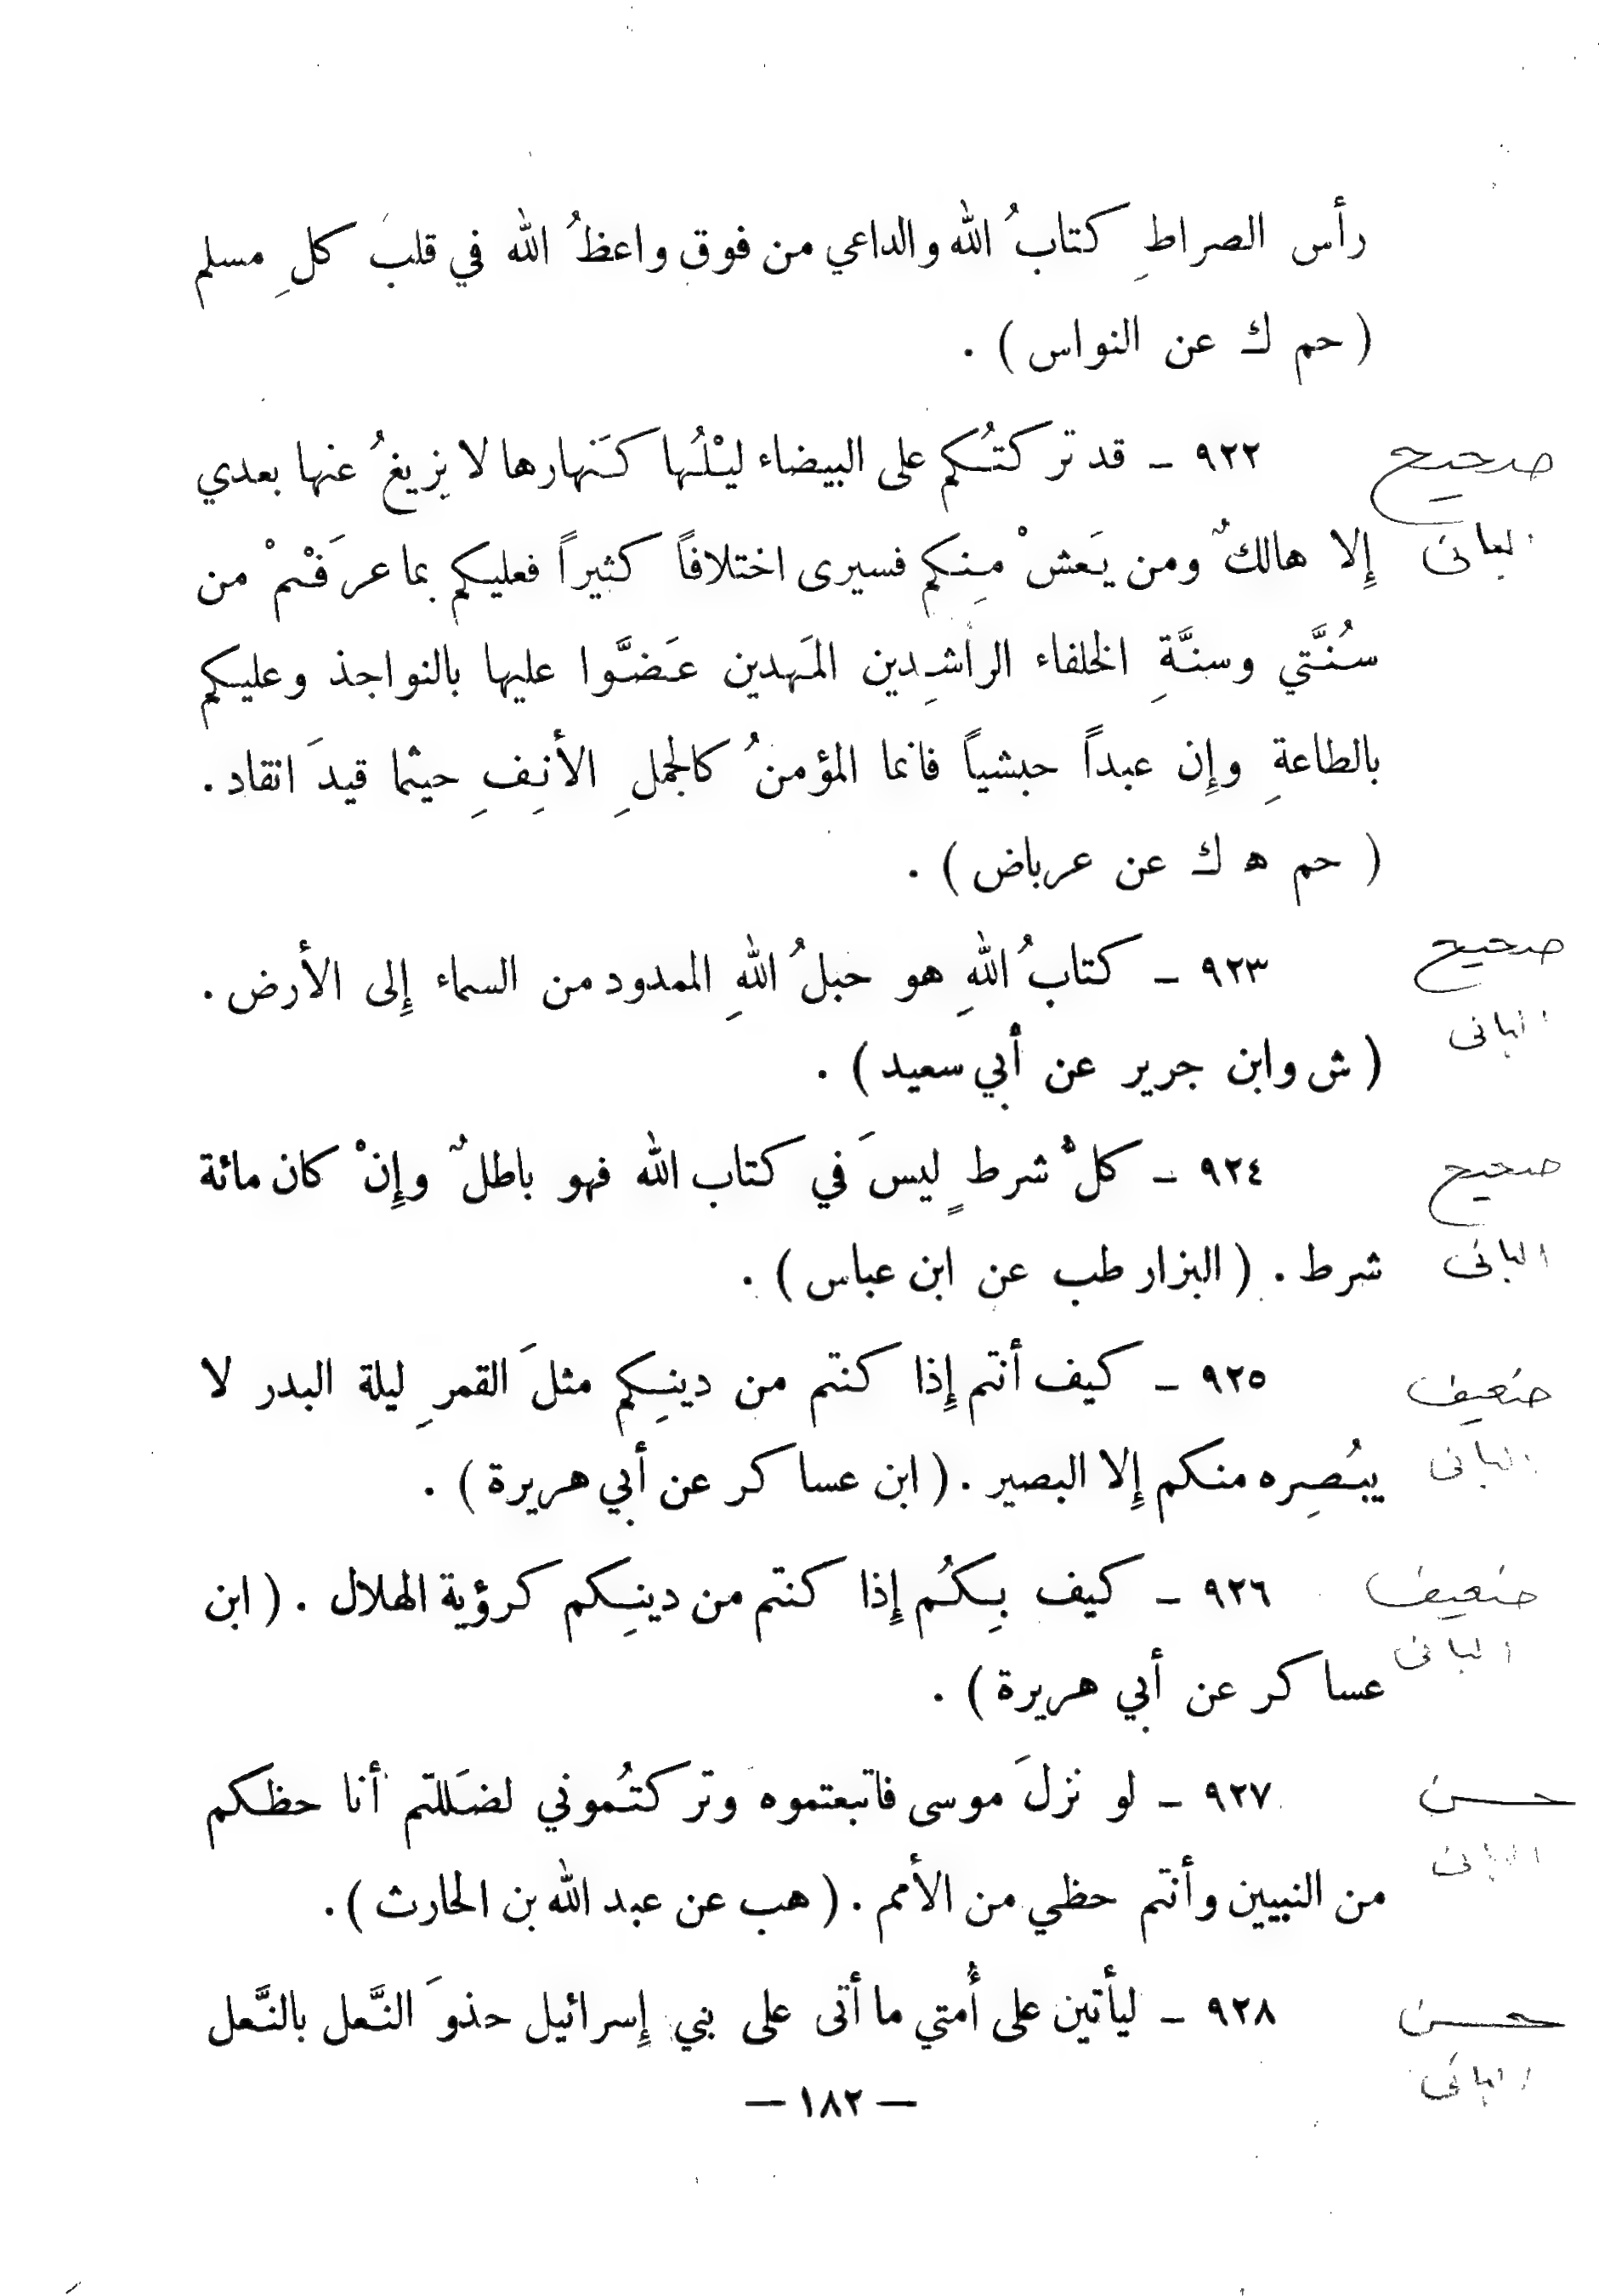 رأس الصراطِ كتابُ الله والداعي من فوق واعظُ الله في قلبَ كلِ مسلم
( حم ك عن النواس ) .
صحيح
٩٢٢ - قد تركتُكم على البيضاء ليْلُها كَنهارها لا يزيغُ عنها بعدي
البانى
إِلا هالكٌ ومن يَعشْ مِنكم فسيرى اختلافاً كثيراً فعليكم بما عرَفْتمْ من
سُنَّتي وسنَّةِ الخلفاء الراشِدين المَهدين عَضَّوا عليها بالنواجذ وعليكم
بالطاعةِ وإِن عبداً حبشياً فانما المؤمنُ كالجملِ الأنِفِ حيثما قيدَ انقاد .
( حم ه ك عن عرباض ) .
صحيح
٩٢٣ - كتابُ اللهِ هو حبلُ اللهِ الممدود من السماء إِلى الأرض .
البانى
( ش وابن جرير عن أبي سعيد ) .
صحيح
٩٢٤ - كلُّ شرطٍ ليسَ في كتاب الله فهو باطلٌ وإِنْ كان مائة
البانى
شرط . ( البزار طب عن ابن عباس ) .
ضعيف
٩٢٥ - كيف أنتم إِذا كنتم من دينِكم مثلَ القمرِ ليلة البدر لا
البانى
يبُصِره منكم إِلا البصير . ( ابن عساكر عن أبي هريرة ) .
ضعيف
٩٢٦ - كيف بِكُم إِذا كنتم من دينِكم كرؤية الهلال . ( ابن
البانى
عساكر عن أبي هريرة ) .
حسن
٩٢٧ - لو نزلَ موسى فاتبعتموه وتركتُموني لضَللتم أنا حظكم
البانى
من النبيين وأنتم حظي من الأمم . ( هب عن عبد الله بن الحارث ) .
حسن
٩٢٨ - ليأتين على أُمتي ما أتى على بني إِسرائيل حذوَ النَّعل بالنَّعل
البانى
— ١٨٢ —